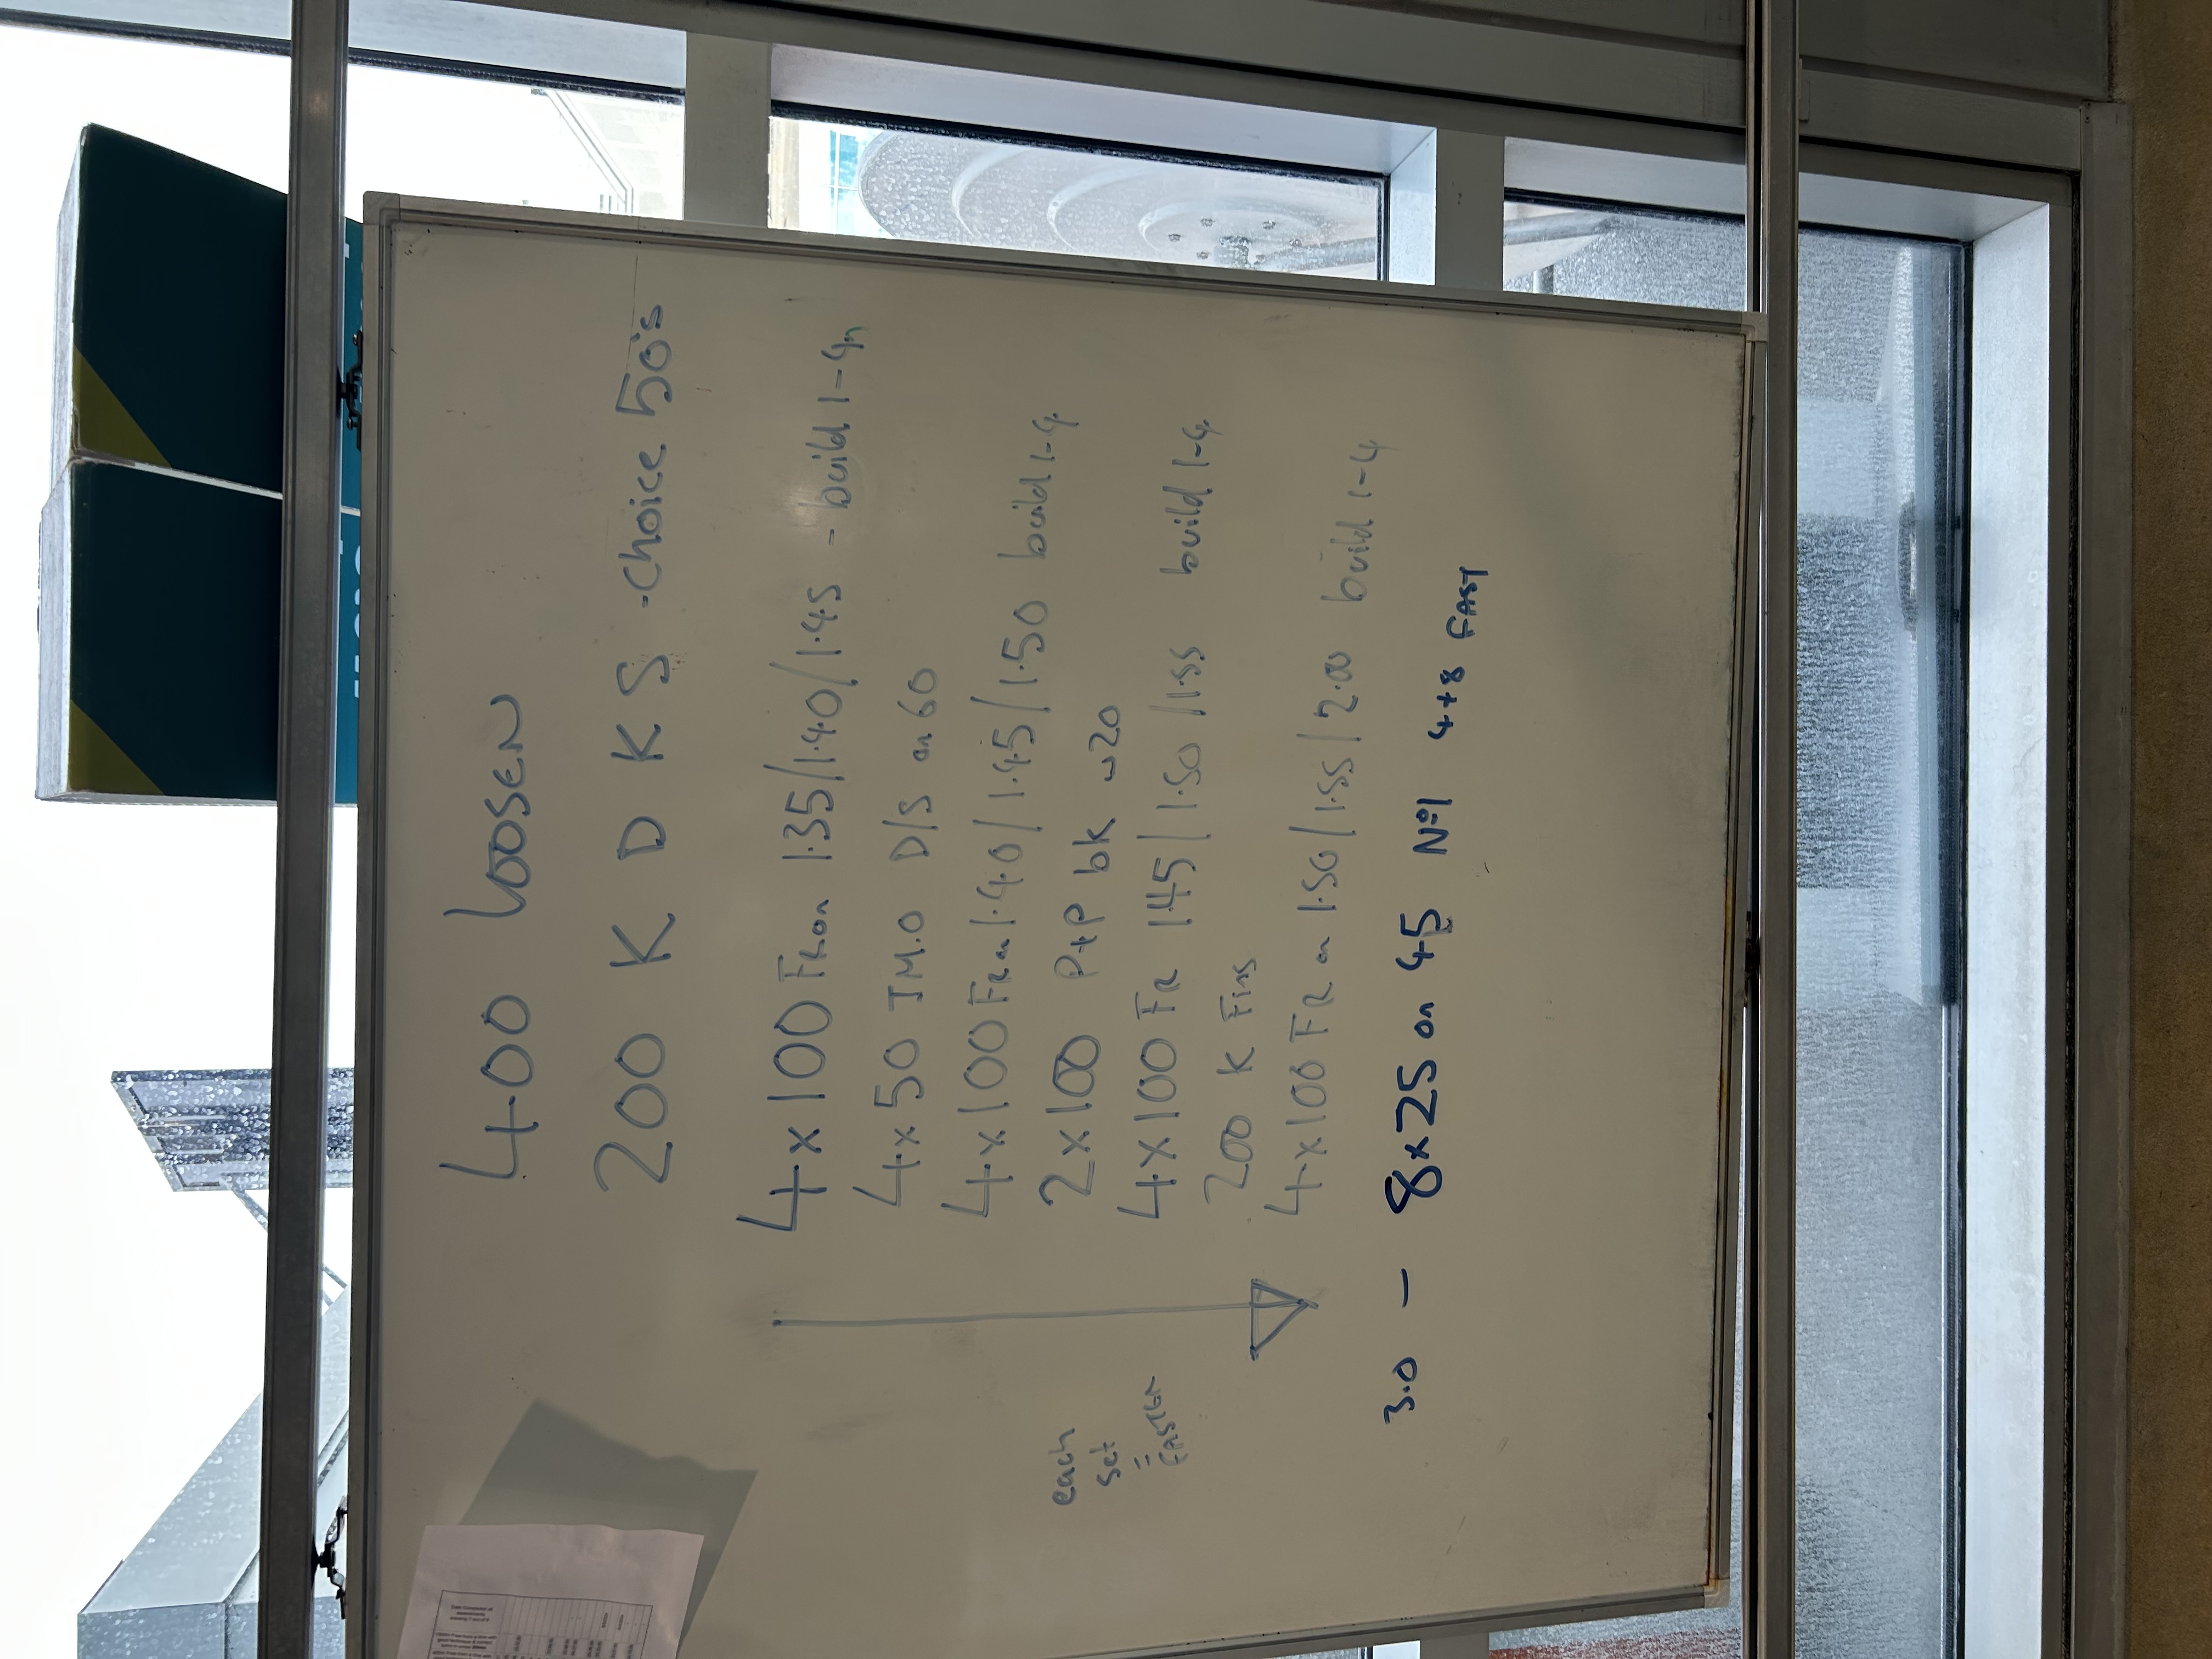 400 LOOSEN
200 K D K S - choice 50's
4x100 FR on 1.35/1.40/1.45 - build 1-4
4x50 I.M.O D/S on 60
4x100 FR on 1.40/1.45/1.50 build 1-4
2x100 P+P bk w20
4x100 FR 1.45/1.50/1.55 build 1-4
200 K Fins
4x100 FR on 1.50/1.55/2.00 build 1-4
each
set
=
FASTER
3.0 - 8x25 on 45 Nº1 4+8 FAST